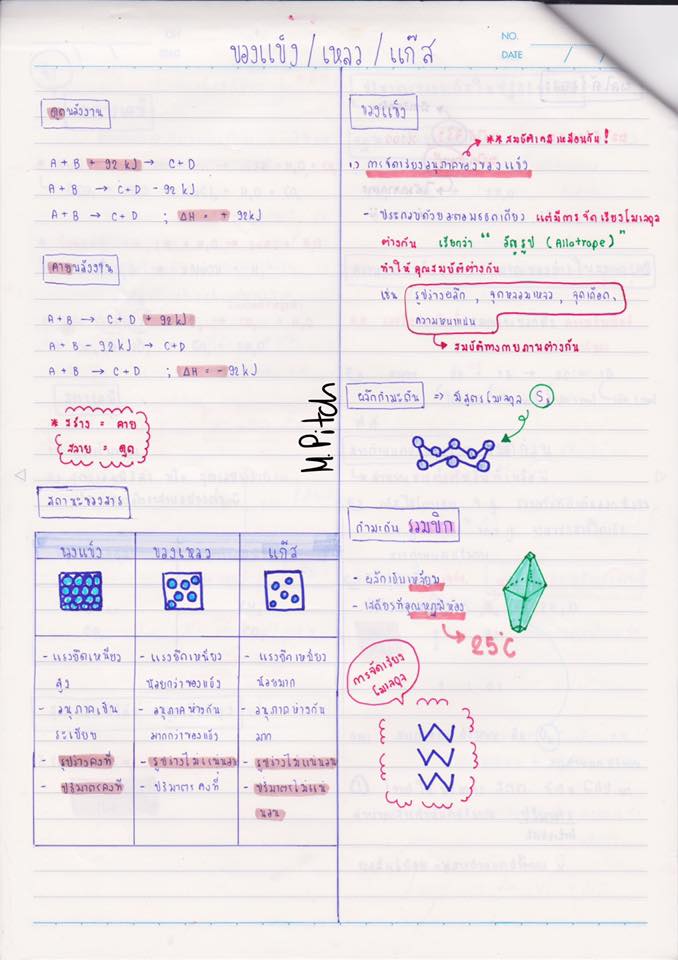 NO.
DATE / /
ของแข็ง / เหลว / แก๊ส
ดูดพลังงาน
A + B + 92 kJ → C + D
A + B → C + D - 92 kJ
A + B → C + D ; ΔH = + 92 kJ
คายพลังงาน
A + B → C + D + 92 kJ
A + B - 92 kJ → C + D
A + B → C + D ; ΔH = - 92 kJ
* สร้าง = คาย
สลาย = ดูด
สถานะของสาร
ของแข็ง ของเหลว แก๊ส
- แรงยึดเหนี่ยว - แรงยึดเหนี่ยว - แรงยึดเหนี่ยว
สูง น้อยกว่าของแข็ง น้อยมาก
- อนุภาคเป็น - อนุภาคห่างกัน - อนุภาคห่างกัน
ระเบียบ มากกว่าของแข็ง มาก
- รูปร่างคงที่ - รูปร่างไม่แน่นอน - รูปร่างไม่แน่นอน
- ปริมาตรคงที่ - ปริมาตรคงที่ - ปริมาตรไม่แน่
นอน
M.Pitch
ของแข็ง
** สมบัติเคมีเหมือนกัน !
1.) การจัดเรียงอนุภาคของของแข็ง
- ประกอบด้วยอะตอมธาตุเดียว แต่มีการจัดเรียงโมเลกุล
ต่างกัน เรียกว่า " อัญรูป (Allotrope) "
ทำให้คุณสมบัติต่างกัน
เช่น รูปร่างผลึก , จุดหลอมเหลว , จุดเดือด ,
ความหนาแน่น
สมบัติทางกายภาพต่างกัน
ผลึกกำมะถัน => มีสูตรโมเลกุล S₈
กำมะถัน รอมบิก
- ผลึกเป็นเหลี่ยม
- เสถียรที่อุณหภูมิห้อง
25°C
การจัดเรียง
โมเลกุล